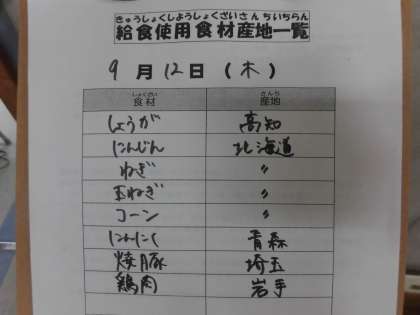 きゅうしょくしようしょくざいさんちいちらん
給食使用食材産地一覧
9月12日(木)
しょくざい さんち
食材 産地
しょうが 高知
にんじん 北海道
ねぎ 〃
玉ねぎ 〃
コーン 〃
にんにく 青森
焼豚 埼玉
鶏肉 岩手